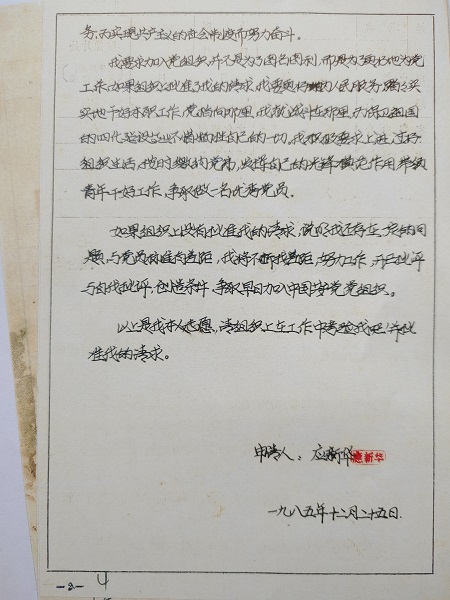 务,为实现共产主义的社会制度而努力奋斗。
我要求加入党组织,并不是为了图名图利,而是为了更好地为党
工作,如果组织上批准了我的请求,我要更好地为人民服务,踏踏实
实地干好本职工作,党指向那里,我就战斗在那里,为保卫祖国
的四代建设事业不惜牺牲自己的一切,我积极要求上进,过好
组织生活,按时缴纳党费,发挥自己的先锋模范作用,带领
青年干好工作,争取做一名优秀党员。
如果组织上没有批准我的请求,说明我还存在一定的问
题,与党员标准有差距,我将不断找差距,努力工作,开展批评
与自我批评,创造条件,争取早日加入中国共产党党组织。
以上是我本人志愿,请组织上在工作中考验我吧!并批
准我的请求。
申请人:应新华 应新华
一九八五年十二月二十五日
-2- 4